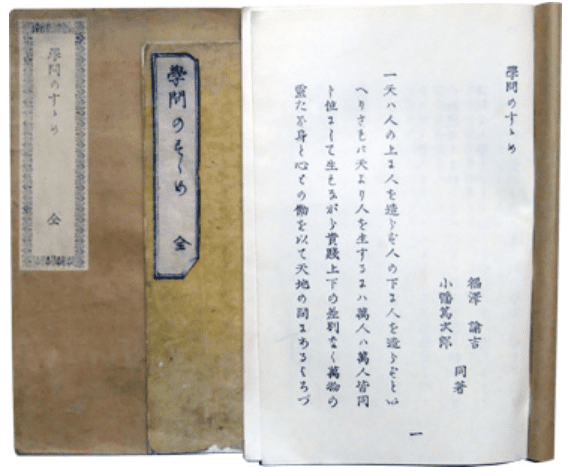 學問のすゝめ
福澤 諭吉
小幡篤次郎
同著
一天ハ人の上ニ人を造らず人の下ニ人を造らずと云
へりされバ天より人を生ずるニハ萬人ハ萬人皆同
じ位ニして生れながら貴賤上下の差別なく萬物の
靈たる身と心との働を以て天地の間ニあるよろづ
一
學問のすゝめ 全
學問のすゝめ 全